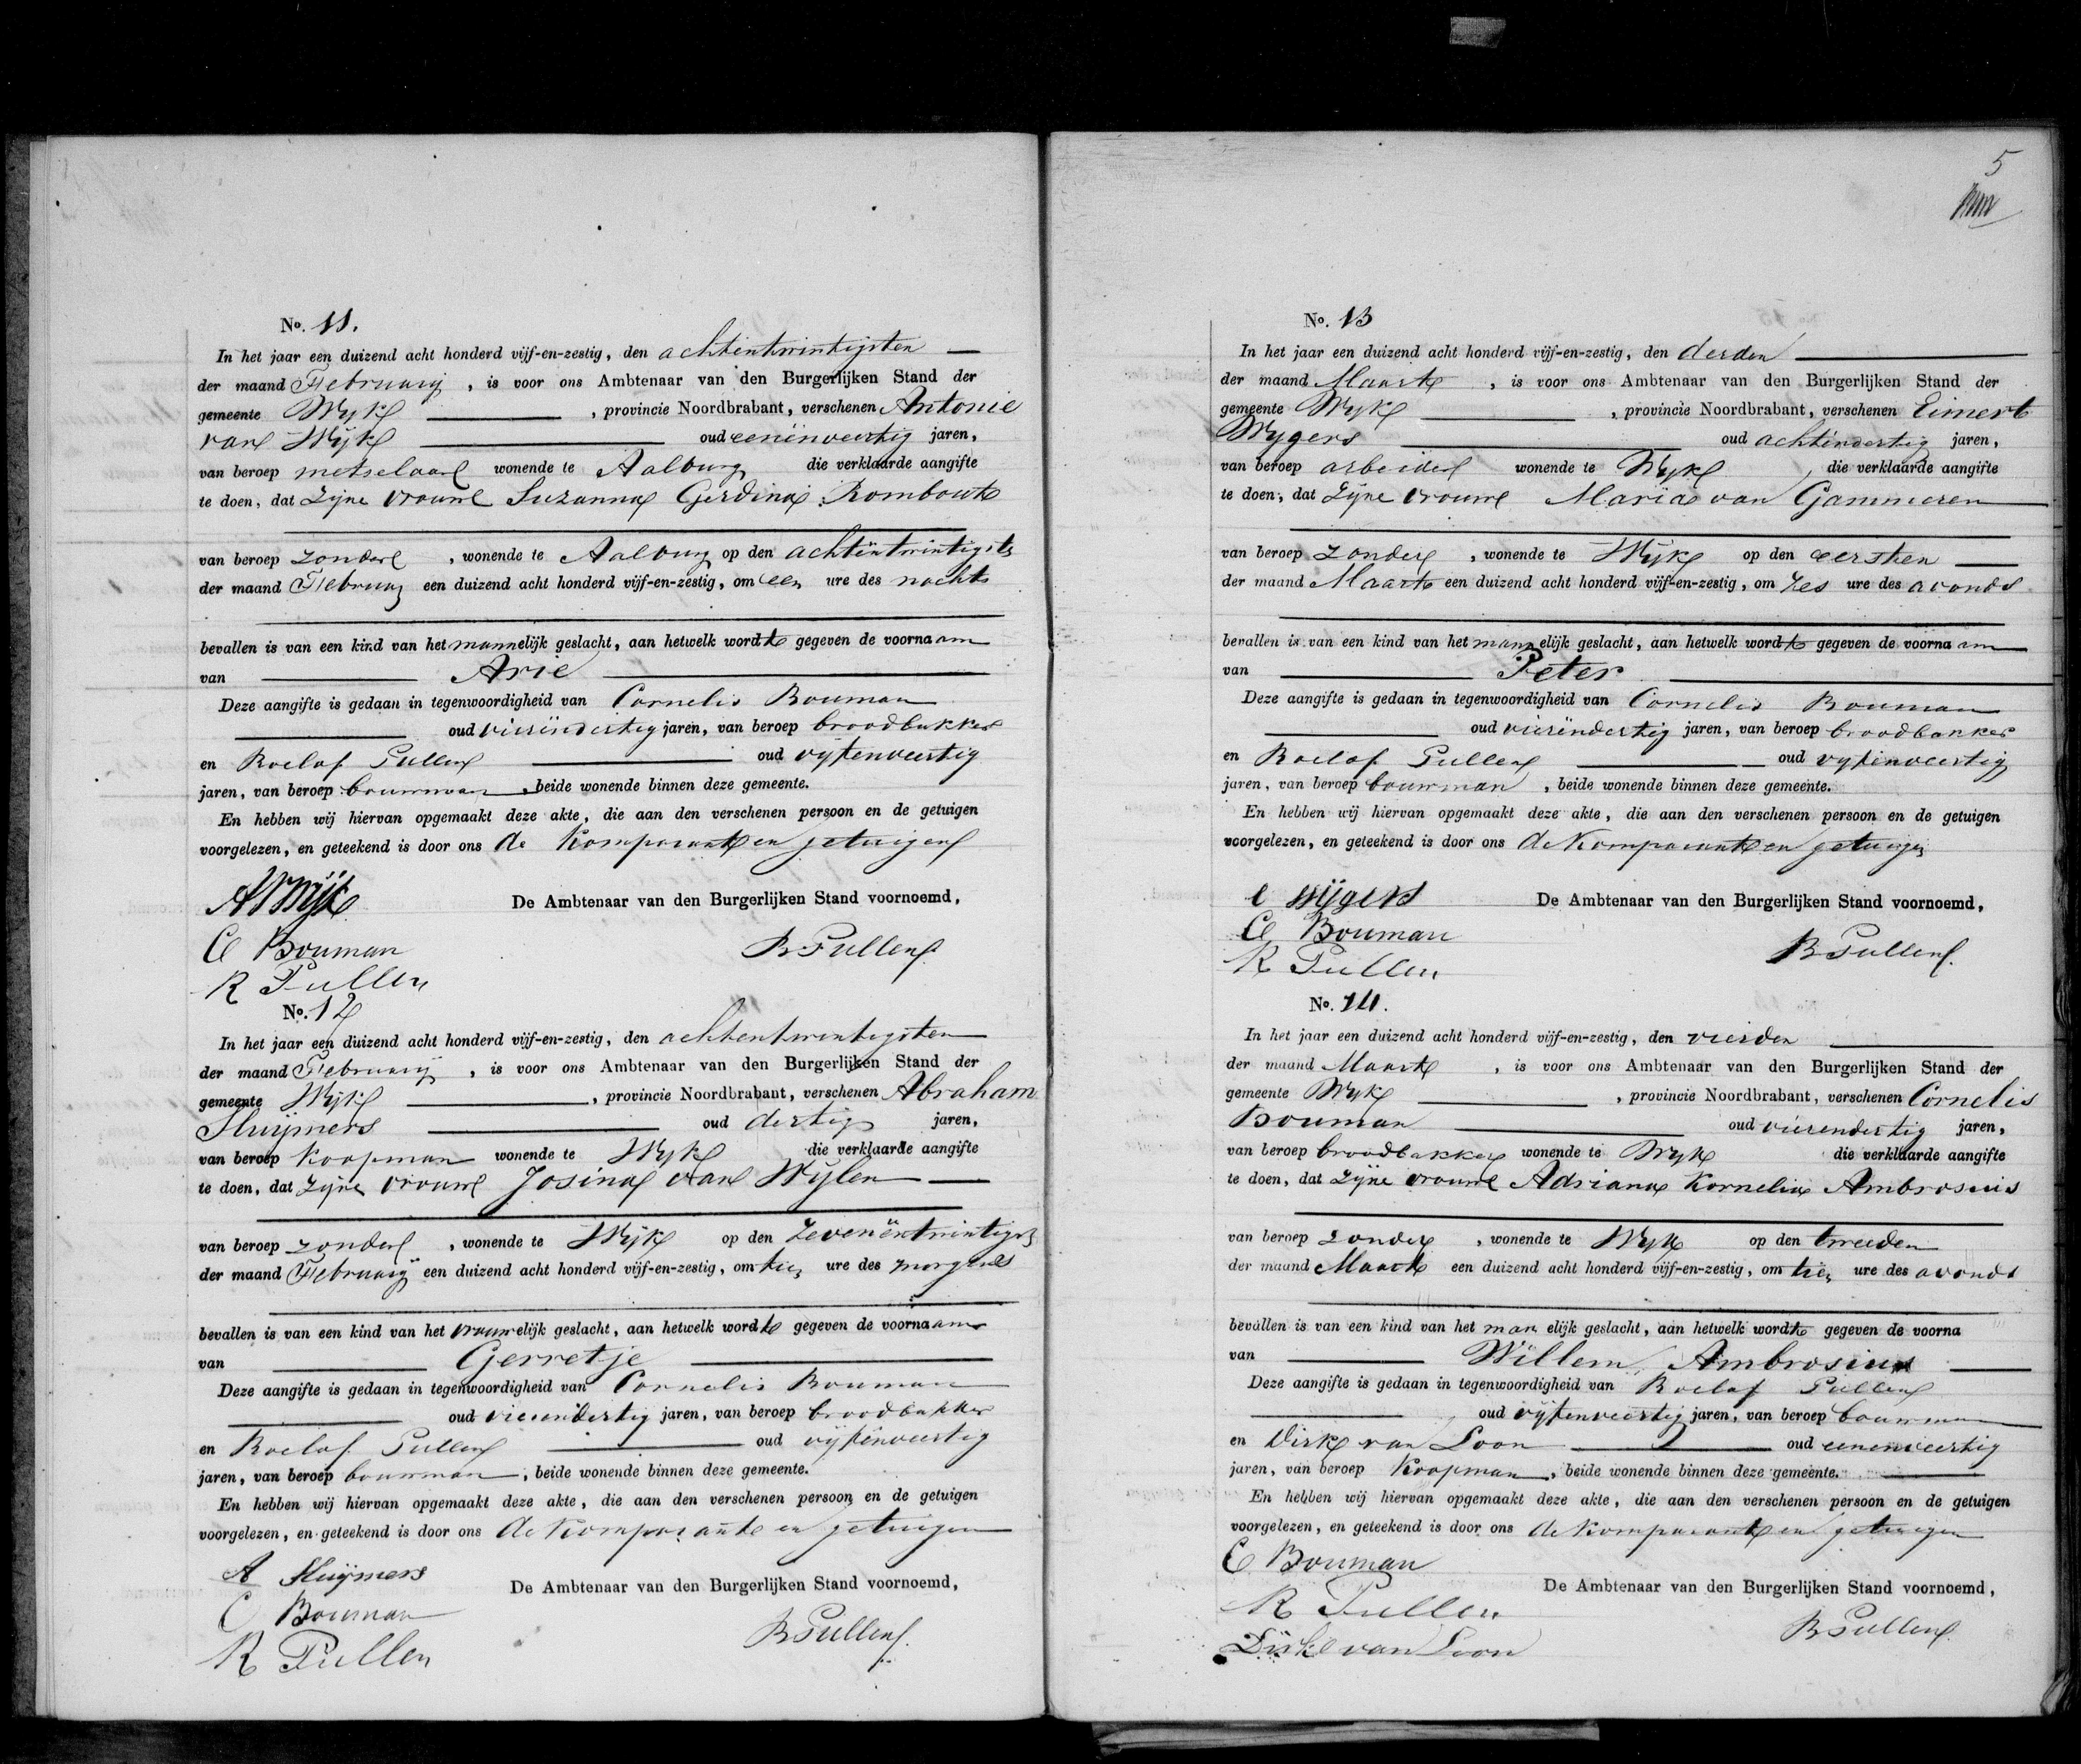 No. 11.
In het jaar een duizend acht honderd vijf-en-zestig, den achtentwintigsten
der maand Februarij, is voor ons Ambtenaar van den Burgerlijken Stand der
gemeente Wijk, provincie Noordbrabant, verschenen Antonie
van Wijk oud eenënveertig jaren,
van beroep metselaar wonende te Aalburg die verklaarde aangifte
te doen, dat zijne vrouw Suzanna Gerdina Rombout
van beroep zonder, wonende te Aalburg op den achtëntwintigste
der maand Februarij een duizend acht honderd vijf-en-zestig, om een ure des nachts
bevallen is van een kind van het mannelijk geslacht, aan hetwelk wordt gegeven de voornaam
van Arie
Deze aangifte is gedaan in tegenwoordigheid van Cornelis Bouman
oud vierëndertig jaren, van beroep broodbakker
en Roelof Pullen oud vijfenveertig
jaren, van beroep bouwman, beide wonende binnen deze gemeente.
En hebben wij hiervan opgemaakt deze akte, die aan den verschenen persoon en de getuigen
voorgelezen, en geteekend is door ons de Komparant en getuigen
De Ambtenaar van den Burgerlijken Stand voornoemd,
AVWijk
C Bouman
R Pullen
B Pullen
No. 12
In het jaar een duizend acht honderd vijf-en-zestig, den achtentwintigsten
der maand Februarij, is voor ons Ambtenaar van den Burgerlijken Stand der
gemeente Wijk, provincie Noordbrabant, verschenen Abraham
Sluijmers oud dertig jaren,
van beroep Koopman wonende te Wijk die verklaarde aangifte
te doen, dat zijne vrouw Josina van Wijlen
van beroep zonder, wonende te Wijk op den zevenëntwintigst
der maand Februarij een duizend acht honderd vijf-en-zestig, om tien ure des morgens
bevallen is van een kind van het vrouwelijk geslacht, aan hetwelk wordt gegeven de voornaam
van Gerretje
Deze aangifte is gedaan in tegenwoordigheid van Cornelis Bouman
oud vierendertig jaren, van beroep broodbakker
en Roelof Pullen oud vijfenveertig
jaren, van beroep bouwman, beide wonende binnen deze gemeente.
En hebben wij hiervan opgemaakt deze akte, die aan den verschenen persoon en de getuigen
voorgelezen, en geteekend is door ons de Komparant en getuigen
A Sluijmers
De Ambtenaar van den Burgerlijken Stand voornoemd,
C Bouman
R Pullen
B Pullen
5
No. 13
In het jaar een duizend acht honderd vijf-en-zestig, den derden
der maand Maart, is voor ons Ambtenaar van den Burgerlijken Stand der
gemeente Wijk, provincie Noordbrabant, verschenen Eimert
Wijgers oud achtendertig jaren,
van beroep arbeider wonende te Wijk, die verklaarde aangifte
te doen, dat zijne vrouw Maria van Gammeren
van beroep zonder, wonende te Wijk op den eersten
der maand Maart een duizend acht honderd vijf-en-zestig, om zes ure des avonds
bevallen is van een kind van het mannelijk geslacht, aan hetwelk wordt gegeven de voornaam
van Peter
Deze aangifte is gedaan in tegenwoordigheid van Cornelis Bouman
oud vierëndertig jaren, van beroep broodbakker
en Roelof Pullen oud vijfenveertig
jaren, van beroep bouwman, beide wonende binnen deze gemeente.
En hebben wij hiervan opgemaakt deze akte, die aan den verschenen persoon en de getuigen
voorgelezen, en geteekend is door ons de Komparant en getuigen
e wijgers
De Ambtenaar van den Burgerlijken Stand voornoemd,
C Bouman
R Pullen
B Pullen
No. 14.
In het jaar een duizend acht honderd vijf-en-zestig, den vierden
der maand Maart, is voor ons Ambtenaar van den Burgerlijken Stand der
gemeente Wijk, provincie Noordbrabant, verschenen Cornelis
Bouman oud vierendertig jaren,
van beroep broodbakker wonende te Wijk die verklaarde aangifte
te doen, dat zijne vrouw Adriana Kornelia Ambrosius
van beroep zonder, wonende te Wijk op den tweeden
der maand Maart een duizend acht honderd vijf-en-zestig, om tien ure des avonds
bevallen is van een kind van het man elijk geslacht, aan hetwelk wordt gegeven de voorna
van Willem Ambrosius
Deze aangifte is gedaan in tegenwoordigheid van Roelof Pullen
oud vijfenveertig jaren, van beroep bouwman
en Dirk van Loon oud eenenveertig
jaren, van beroep Koopman, beide wonende binnen deze gemeente.
En hebben wij hiervan opgemaakt deze akte, die aan den verschenen persoon en de getuigen
voorgelezen, en geteekend is door ons de Komparant en getuigen
C Bouman
De Ambtenaar van den Burgerlijken Stand voornoemd,
R Pullen
B Pullen
Dirk van Loon